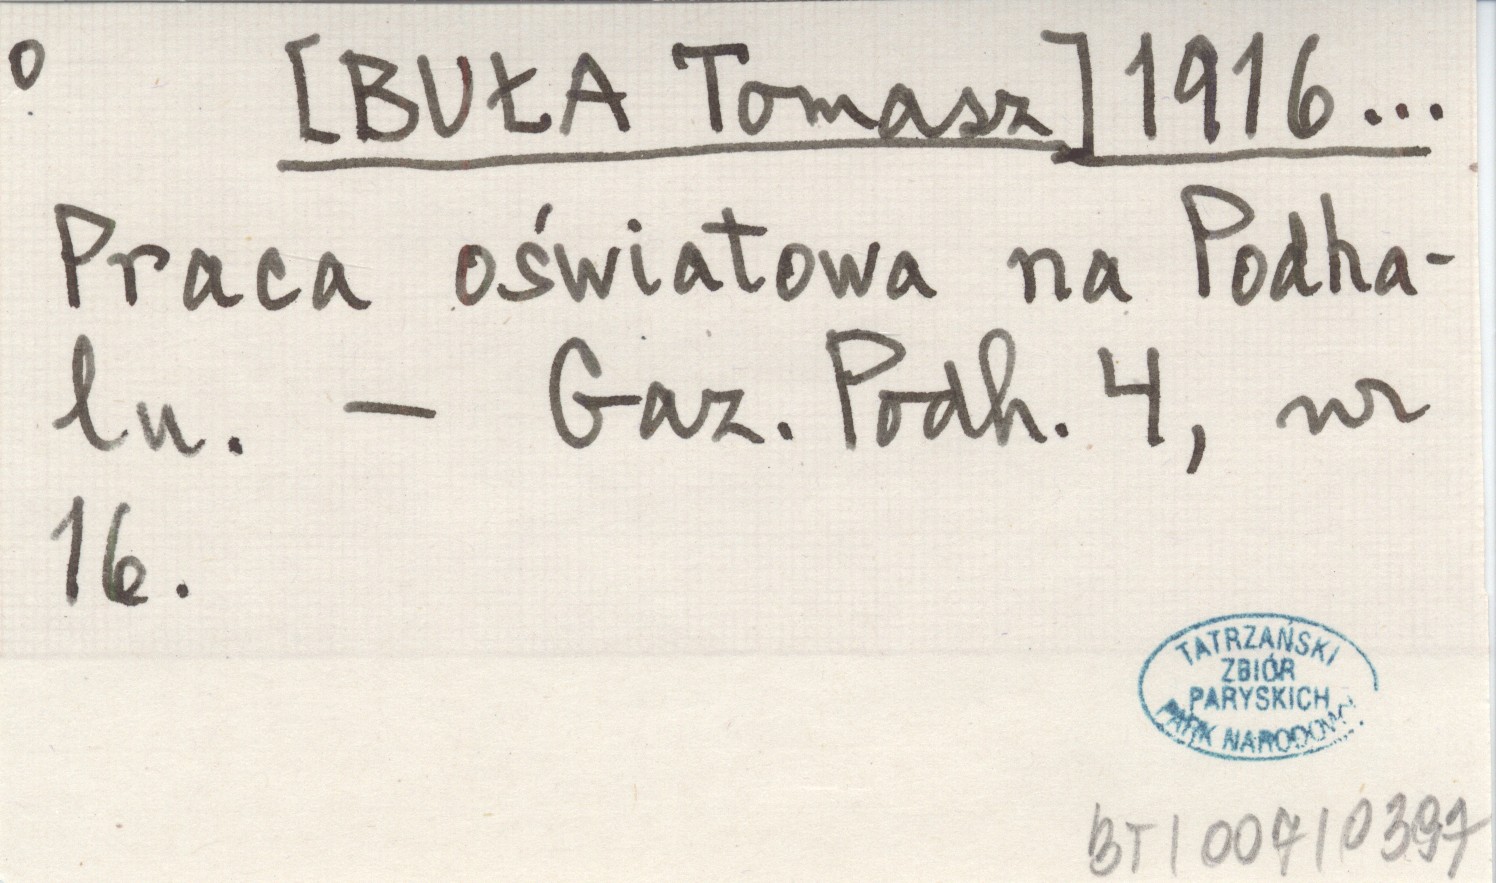 o [BUŁA Tomasz] 1916...
Praca oświatowa na Podha-
lu. — Gaz. Podh. 4, nr
16.
TATRZAŃSKI
ZBIÓR
PARYSKICH
PARK NARODOWY
BT | 007 | 0397